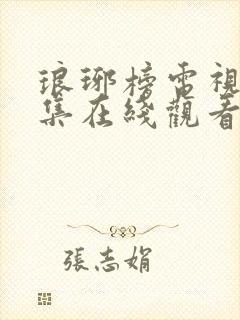 琅琊榜電視
集在綫觀看
張志娟